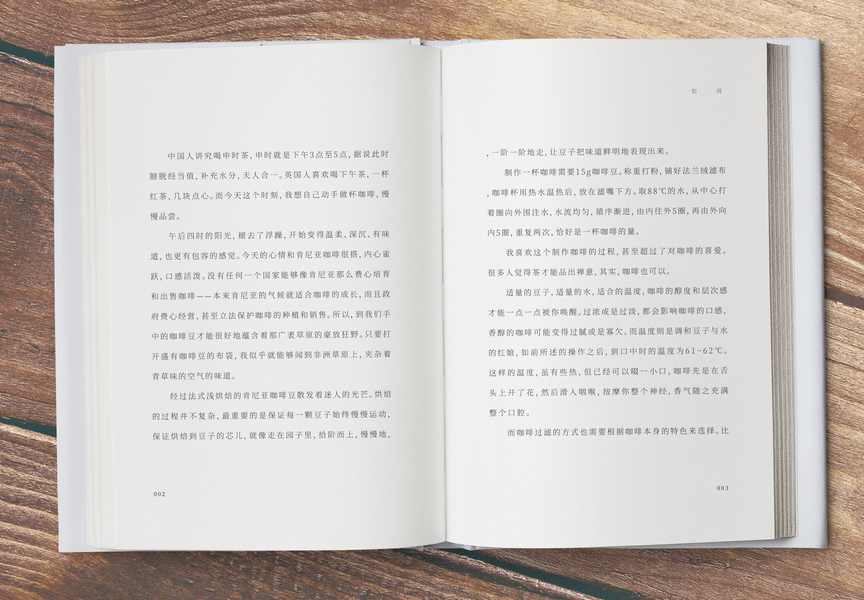 中国人讲究喝申时茶，申时就是下午3点至5点，据说此时
膀胱经当值，补充水分，天人合一。英国人喜欢喝下午茶，一杯
红茶，几块点心。而今天这个时刻，我想自己动手做杯咖啡，慢
慢品尝。
午后四时的阳光，褪去了浮躁，开始变得温柔、深沉、有味
道，也更有包容的感觉。今天的心情和肯尼亚咖啡很搭，内心雀
跃，口感活泼。没有任何一个国家能够像肯尼亚那么费心培育
和出售咖啡——本来肯尼亚的气候就适合咖啡的成长，而且政
府费心经营，甚至立法保护咖啡的种植和销售。所以，到我们手
中的咖啡豆才能很好地蕴含着那广袤草原的豪放狂野。只要打
开盛有咖啡豆的布袋，我似乎就能够闻到非洲草原上，夹杂着
青草味的空气的味道。
经过法式浅烘焙的肯尼亚咖啡豆散发着迷人的光芒。烘焙
的过程并不复杂，最重要的是保证每一颗豆子始终慢慢运动，
保证烘焙到豆子的芯儿，就像走在园子里，拾阶而上，慢慢地，
002
调
，一阶一阶地走，让豆子把味道鲜明地表现出来。
制作一杯咖啡需要15g咖啡豆。称重打粉，铺好法兰绒滤布
，咖啡杯用热水温热后，放在滤嘴下方。取88℃的水，从中心打
着圈向外围注水，水流均匀，循序渐进，由内往外5圈，再由外向
内5圈，重复两次，恰好是一杯咖啡的量。
我喜欢这个制作咖啡的过程，甚至超过了对咖啡的喜爱。
很多人觉得茶才能品出禅意，其实，咖啡也可以。
适量的豆子，适量的水，适合的温度，咖啡的醇度和层次感
才能一点一点被你唤醒。过浓或是过淡，都会影响咖啡的口感，
香醇的咖啡可能变得过腻或是寡欠。而温度则是调和豆子与水
的红娘，如前所述的操作之后，到口中时的温度为61~62℃。
这样的温度，虽有些热，但已经可以啜一小口，咖啡先是在舌
头上开了花，然后滑入咽喉，按摩你整个神经，香气随之充满
整个口腔。
而咖啡过滤的方式也需要根据咖啡本身的特色来选择。比
003